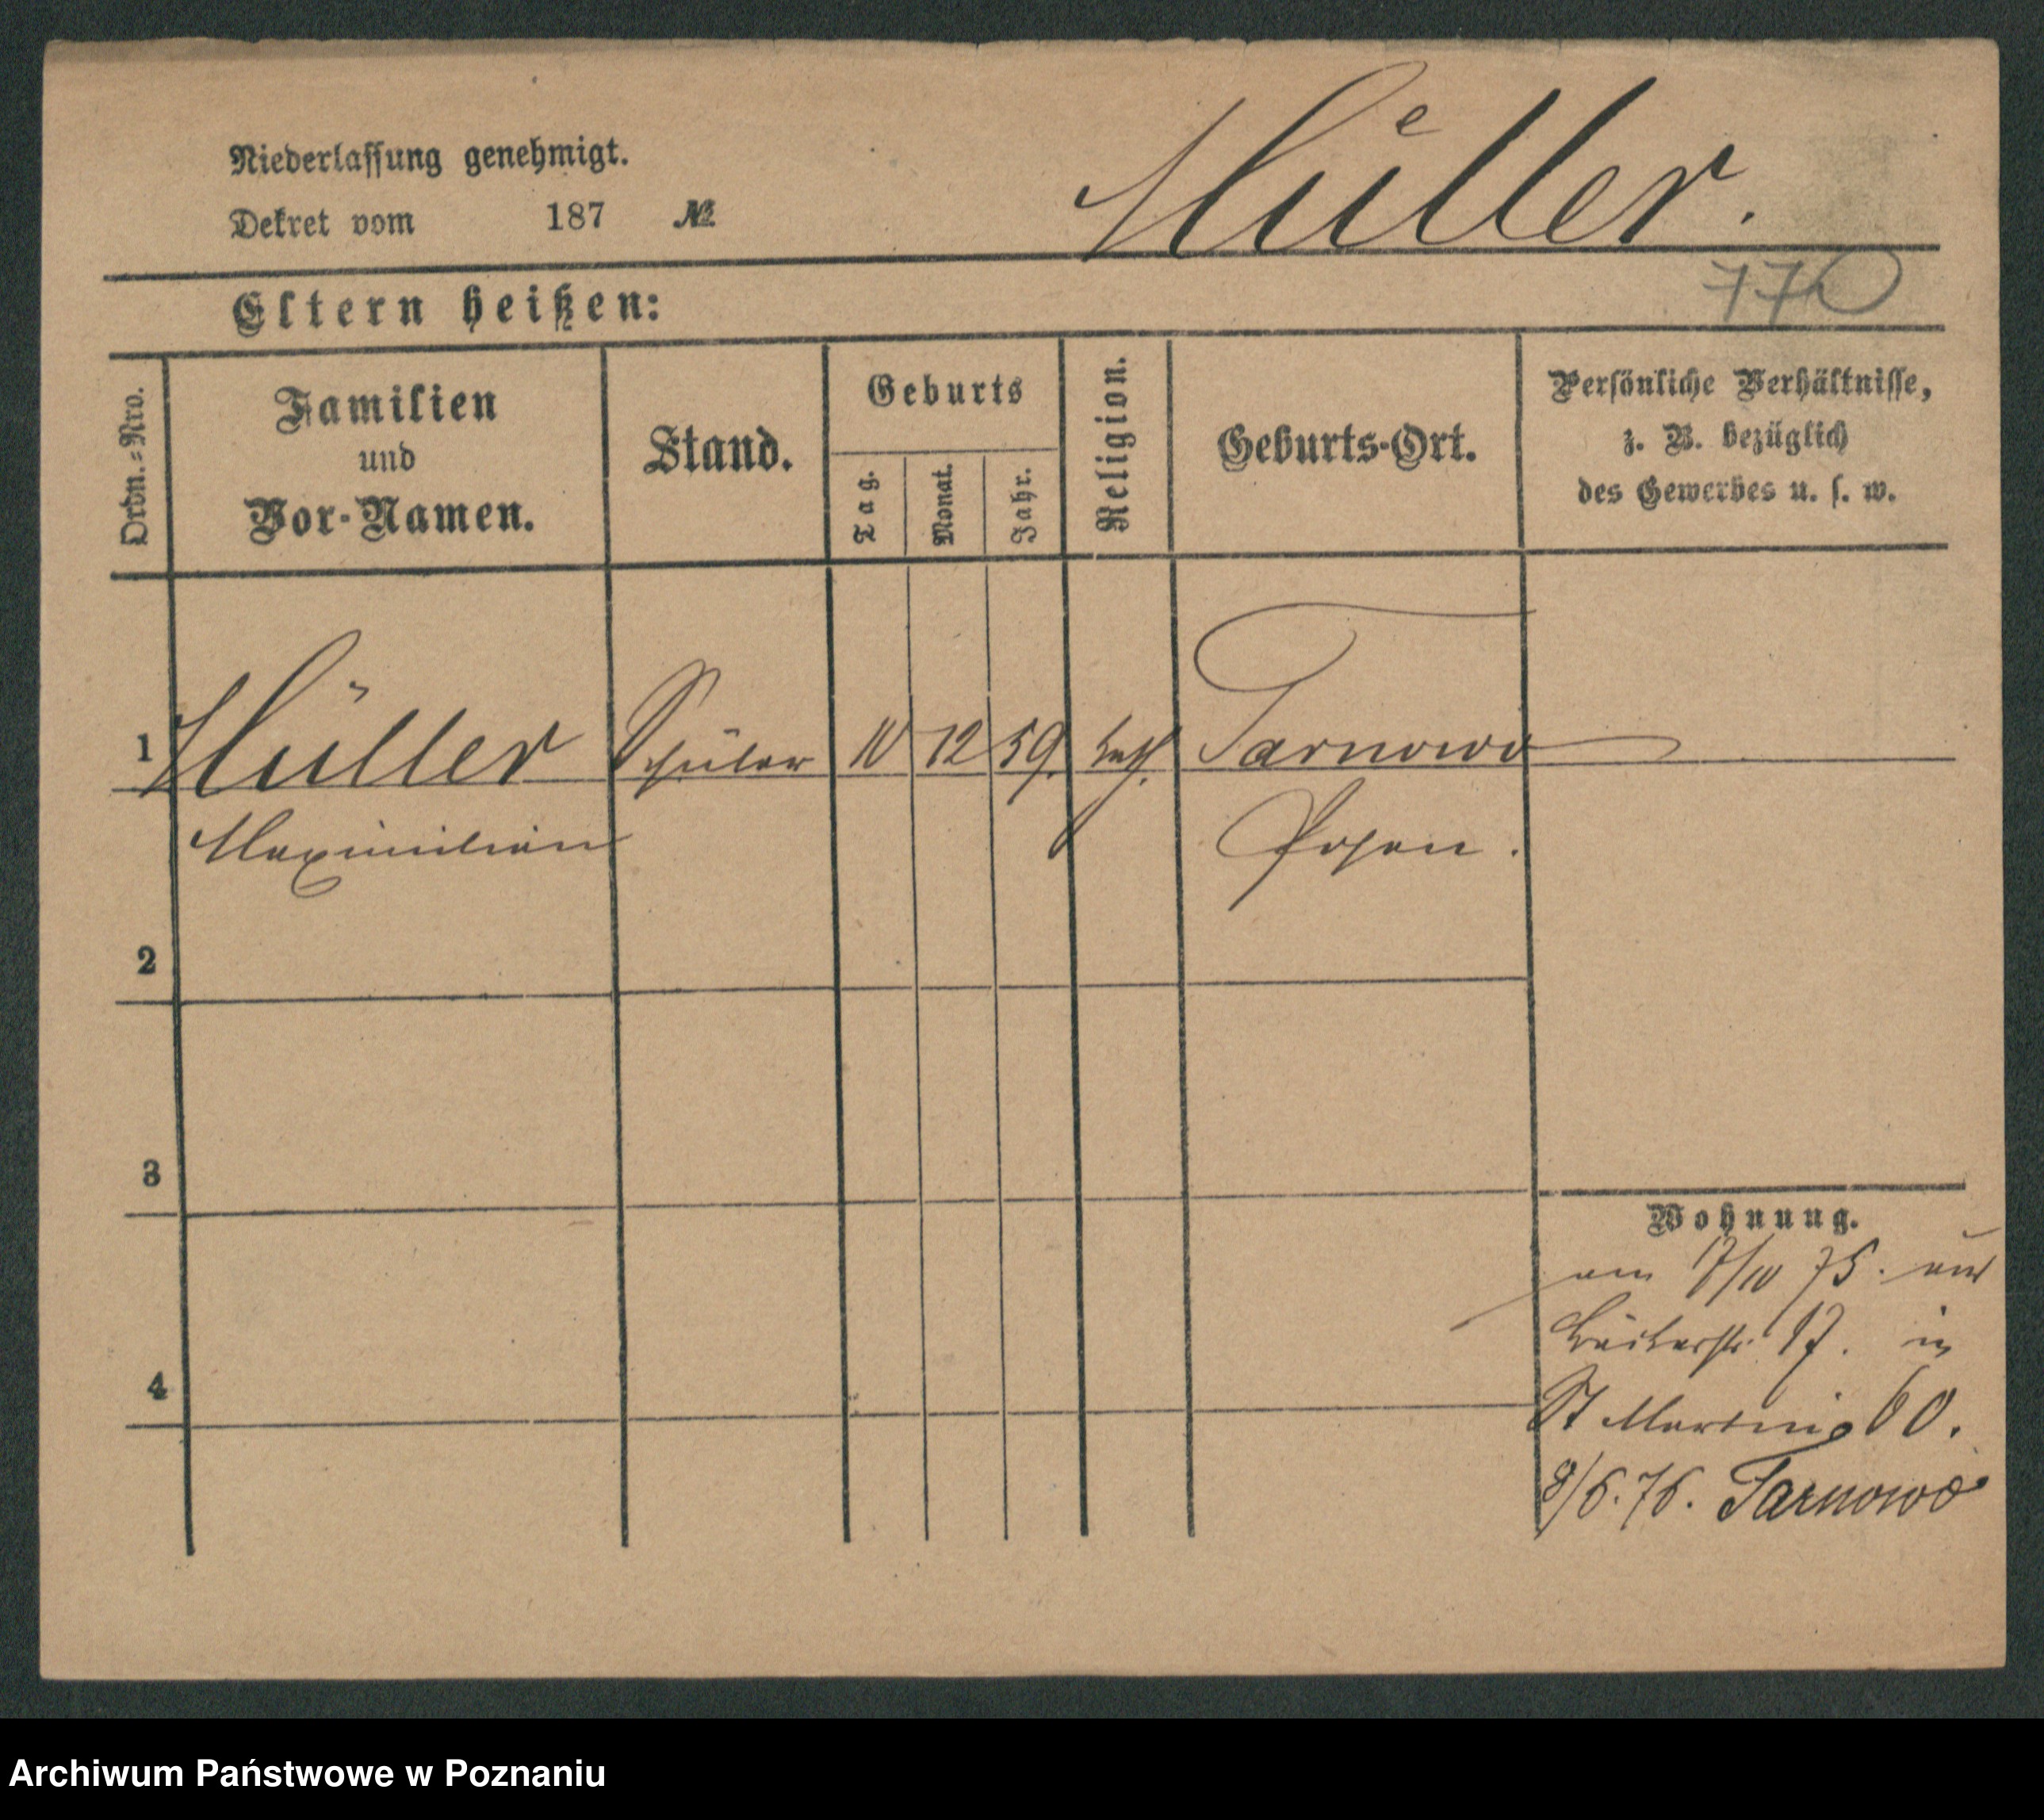 Niederlassung genehmigt.
Dekret vom 187 №
Müller.
770
Eltern heißen:
Ordn.=Nro.
Familien
und
Vor-Namen.
Stand.
Geburts
Tag.
Monat.
Jahr.
Religion.
Geburts-Ort.
Persönliche Verhältnisse,
z. B. bezüglich
des Gewerbes u. s. w.
1 Müller Schüler 10 12 59. kath. Tarnowo
Maximilian Posen.
2
3
4
Wohnung.
am 75. aus
Bäckerstr. 17. in
St Martin 60.
8/6.76. Tarnowo
Archiwum Państwowe w Poznaniu